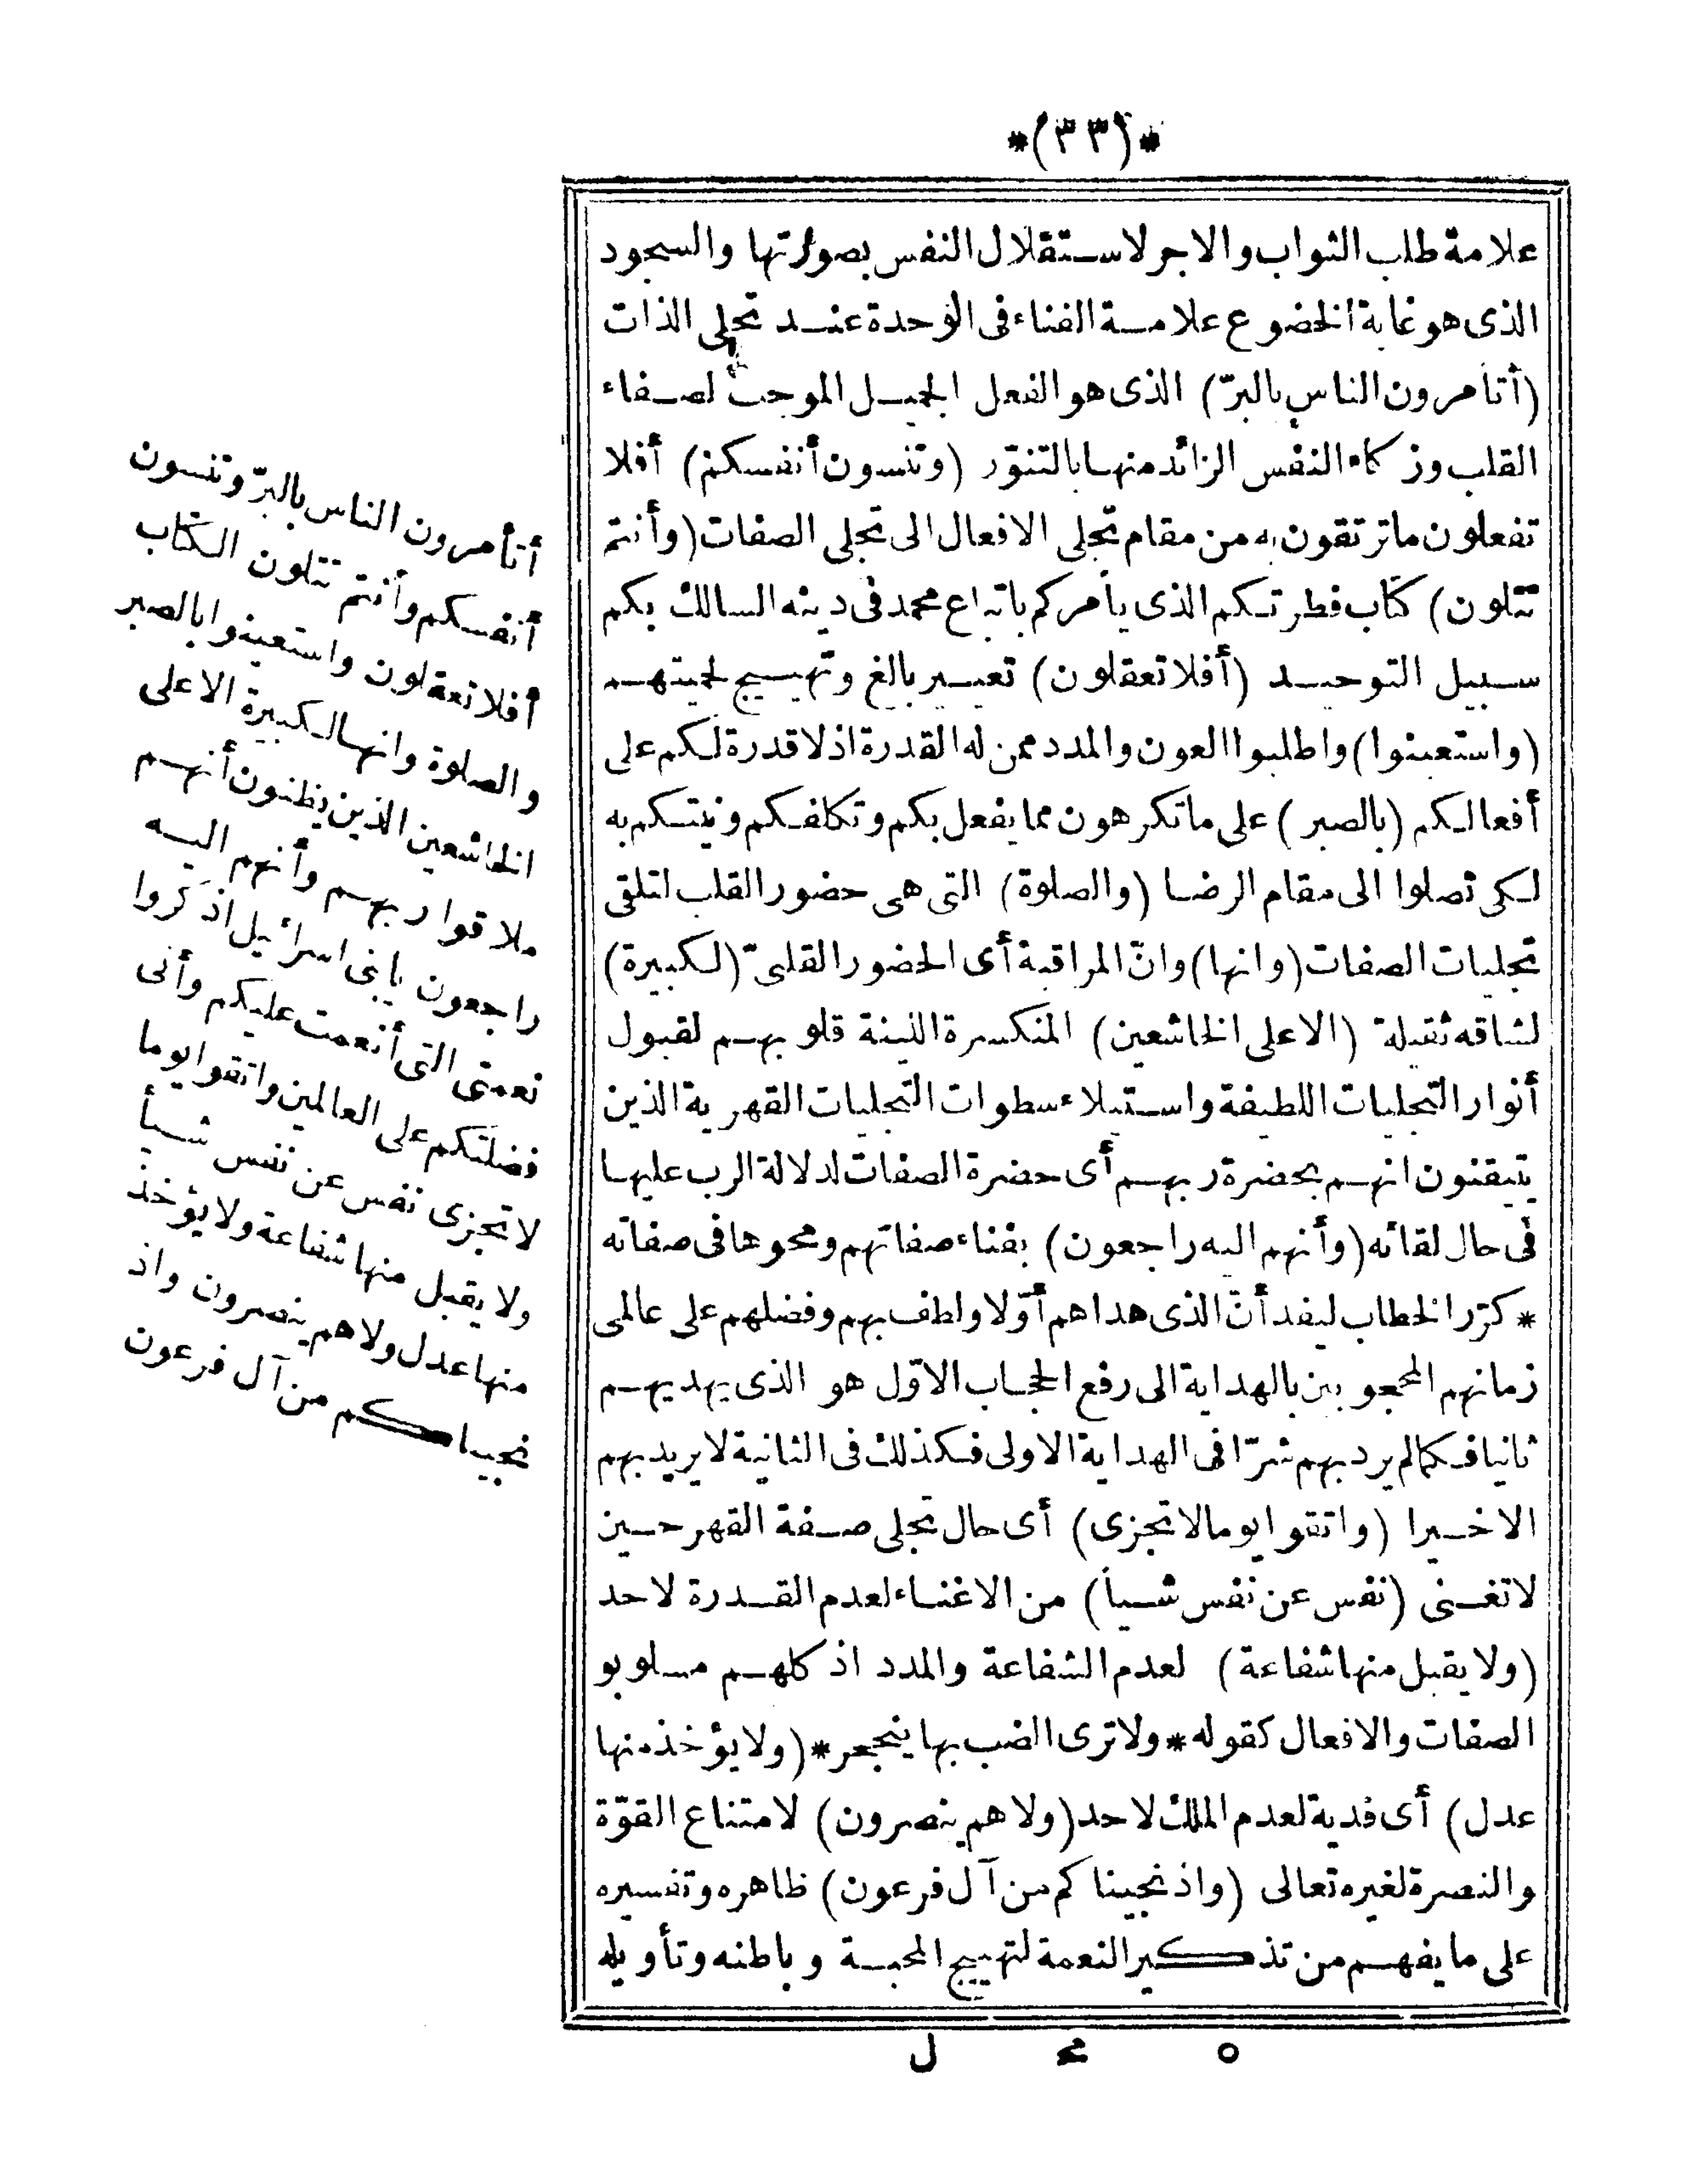 *(٣٣)*
علامة طلب الثواب والاجر لاستقلال النفس بصورتها والسجود
الذى هو غاية الخضوع علامة الفناء فى الوحدة عند تجلى الذات
(أتأمرون الناس بالبرّ) الذى هو الفعل الجميل الموجب لصفاء
القلب وزكاء النفس الزائد منها بالتنوّر (وتنسون أنفسكم) أفلا
تفعلون ما ترتقون به من مقام تجلى الافعال الى تجلى الصفات (وأنتم
تتلون) كتاب فطرتكم الذى يأمركم باتباع محمد فى دينه السالك بكم
سبيل التوحيد (أفلا تعقلون) تعيير بالغ وتهييج لحميتهم
(واستعينوا) واطلبوا العون والمدد ممن له القدرة اذ لا قدرة لكم على
أفعالكم (بالصبر) على ما تكرهون مما يفعل بكم وتكلفكم ونيتكم به
لكى تصلوا الى مقام الرضا (والصلوة) التى هى حضور القلب لتلقى
تجليات الصفات (وانها) وانّ المراقبة أى الحضور القلبىّ (لكبيرة)
لشاقه ثقيلة (الا على الخاشعين) المنكسرة اللينة قلوبهم لقبول
أنوار التجليات اللطيفة واستيلاء سطوات التجليات القهرية الذين
يتيقنون انهم بحضرة ربهم أى حضرة الصفات لدلالة الرب عليها
فى حال لقائه (وأنهم اليه راجعون) بفناء صفاتهم ومحوها فى صفاته
* كرّر الخطاب ليفد أنّ الذى هداهم أوّلا ولطف بهم وفضلهم على عالمى
زمانهم المحجوبين بالهداية الى رفع الحجاب الاوّل هو الذى يهديهم
ثانيا فكما لم يرد بهم شرّا فى الهداية الاولى فكذلك فى الثانية لا يريد بهم
الا خيرا (واتقوا يوما لا تجزى) أى حال تجلى صفة القهر حين
لا تغنى (نفس عن نفس شيأ) من الاغناء لعدم القدرة لاحد
(ولا يقبل منها شفاعة) لعدم الشفاعة والمدد اذ كلهم مسلوبو
الصفات والافعال كقوله * ولا ترى الضب بها ينجحر * (ولا يؤخذ منها
عدل) أى فدية لعدم الملك لاحد (ولا هم ينصرون) لامتناع القوّة
والنصرة لغيره تعالى (واذ نجيناكم من آل فرعون) ظاهره وتفسيره
على ما يفهم من تذكير النعمة لتهييج المحبة وباطنه وتأويله
أتأمرون الناس بالبرّ وتنسون
أنفسكم وأنتم تتلون الكتاب
أفلا تعقلون واستعينوا بالصبر
والصلوة وانها لكبيرة الا على
الخاشعين الذين يظنون أنهم
ملاقوا ربهم وأنهم اليه
راجعون يابنى اسرائيل اذكروا
نعمتى التى أنعمت عليكم وأنى
فضلتكم على العالمين واتقوا يوما
لا تجزى نفس عن نفس شيأ
ولا يقبل منها شفاعة ولا يؤخذ
منها عدل ولا هم ينصرون واذ
نجيناكم من آل فرعون
٥ مح ل